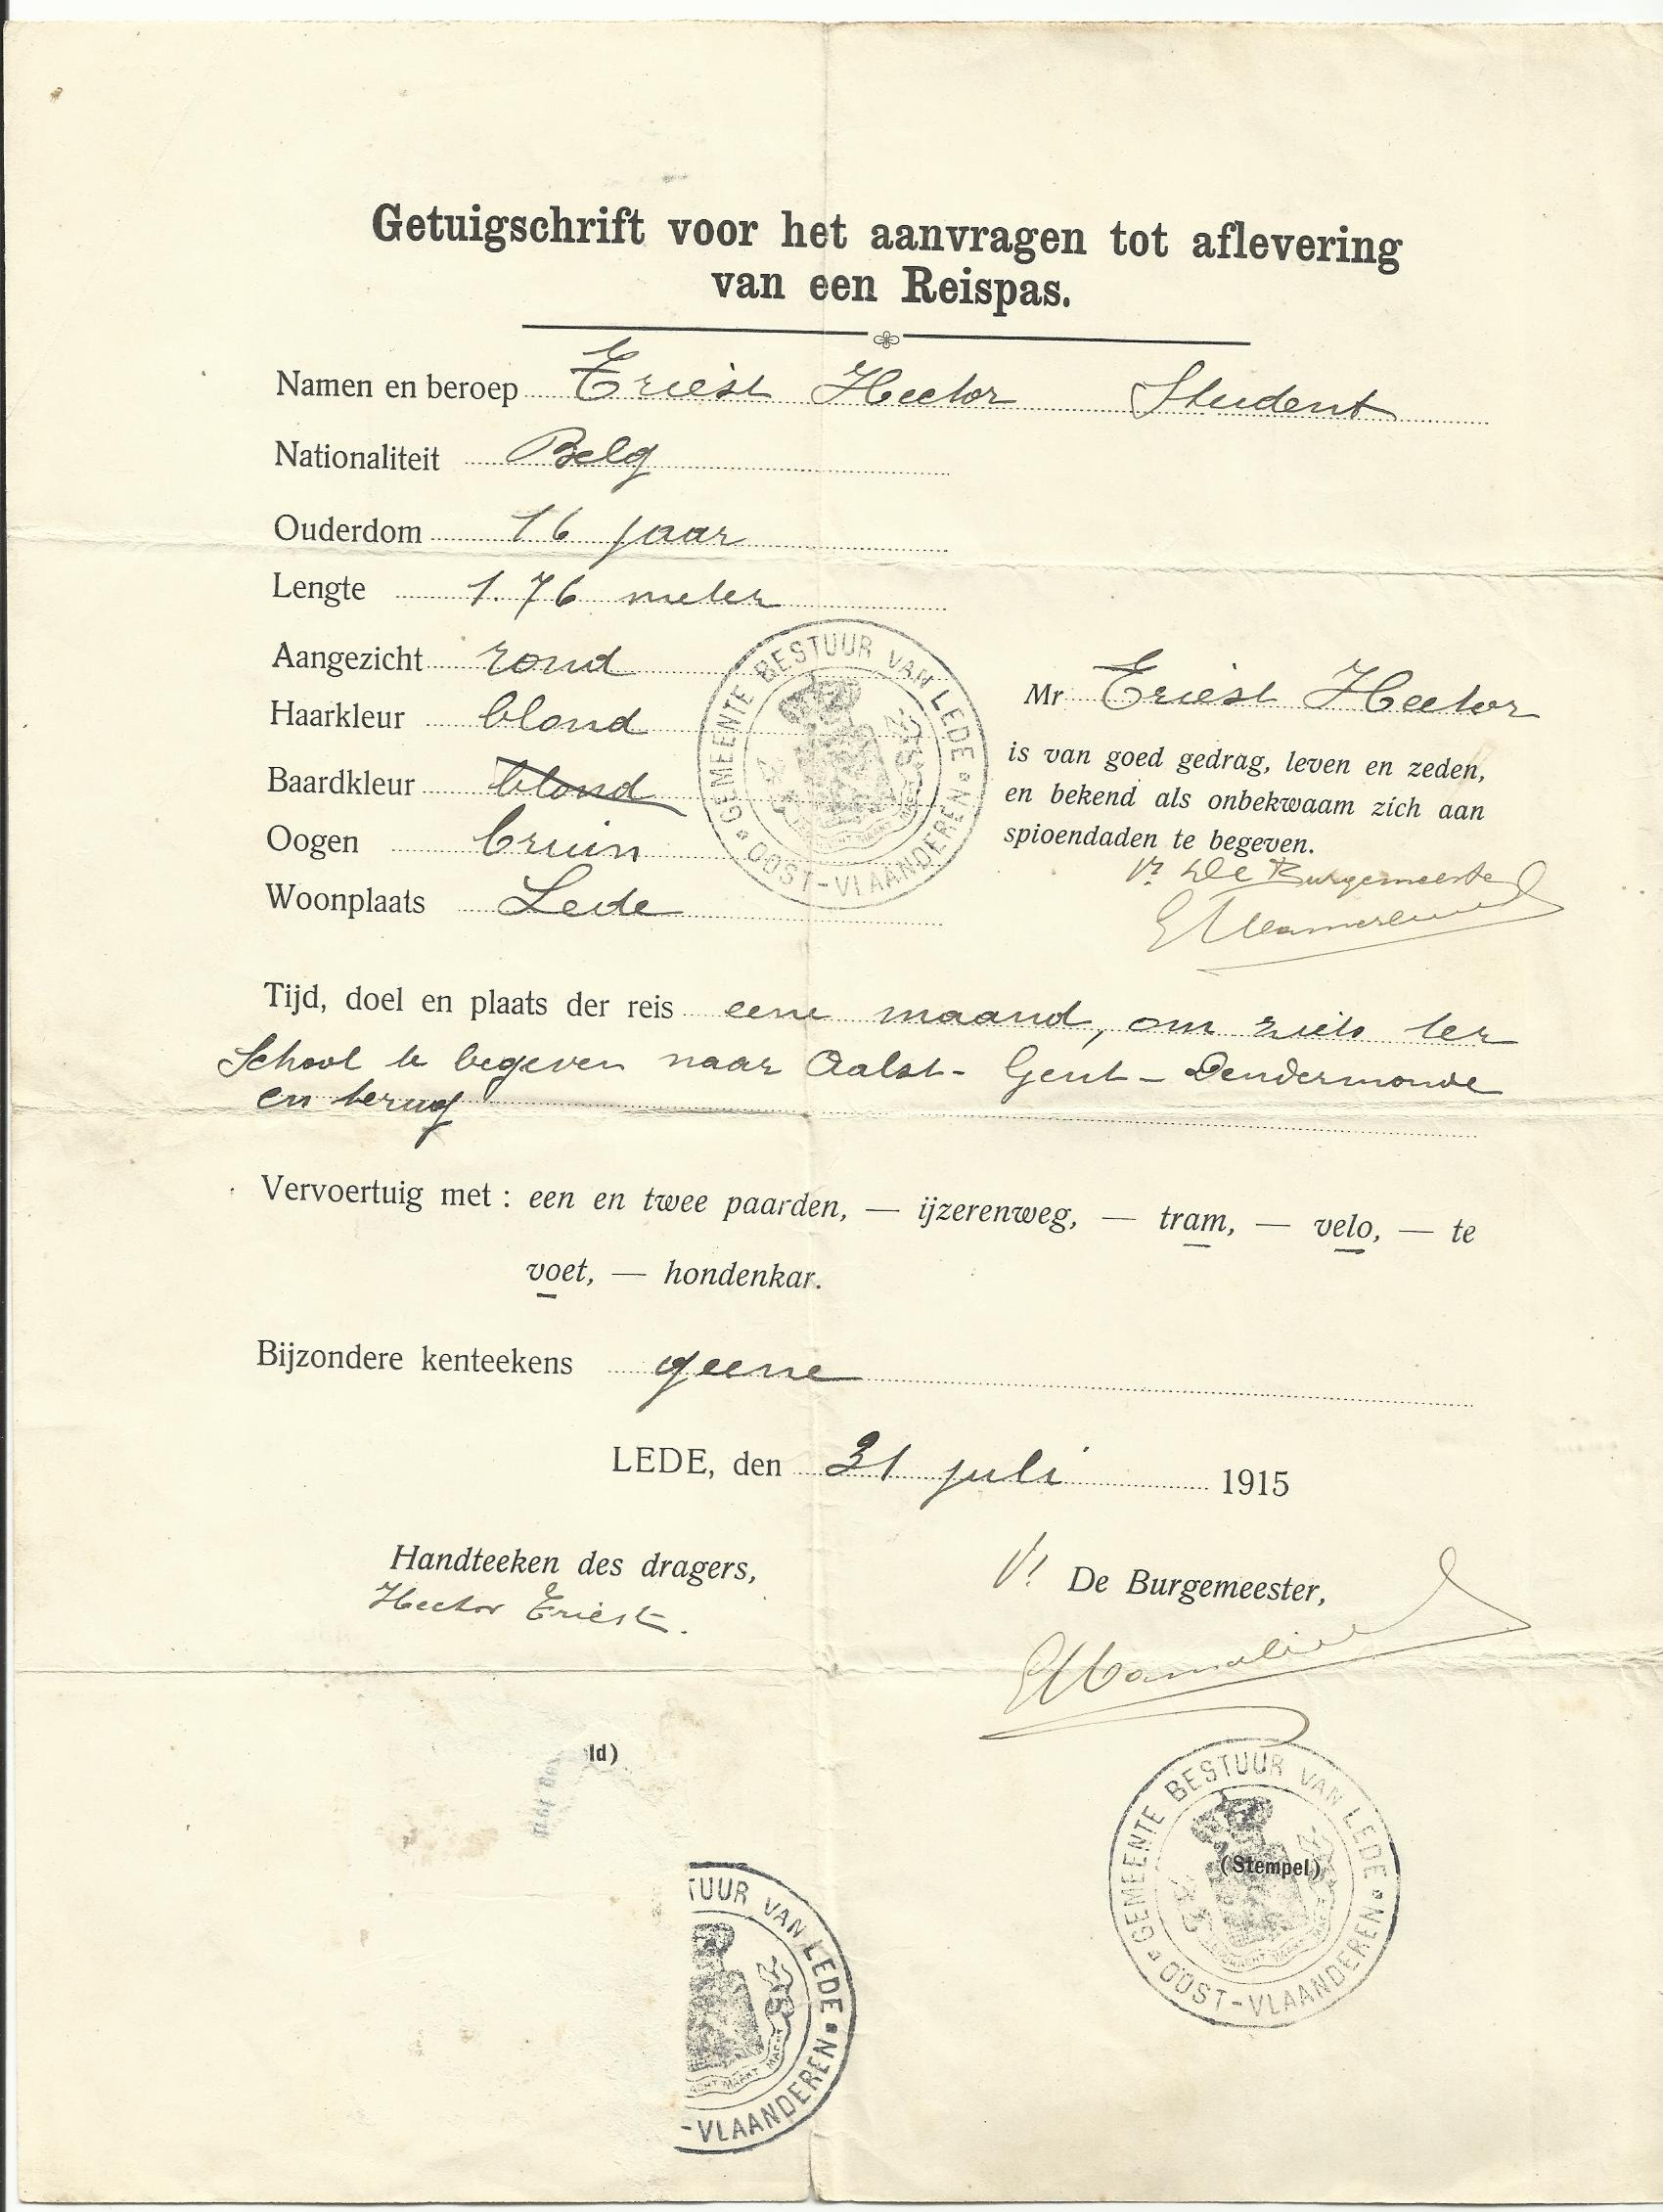 Getuigschrift voor het aanvragen tot aflevering
van een Reispas.
Namen en beroep Eriest Hector Student
Nationaliteit Belg
Ouderdom 16 jaar
Lengte 1.76 meter
Aangezicht rond
Haarkleur blond
Baardkleur blond
Oogen bruin
Woonplaats Lede
GEMEENTE BESTUUR VAN LEDE
OOST-VLAANDEREN
Mr Eriest Hector
is van goed gedrag, leven en zeden,
en bekend als onbekwaam zich aan
spioendaden te begeven.
Vr De Burgemeester
Tijd, doel en plaats der reis eene maand, om ziets ter
School te begeven naar Aalst - Gent - Dendermonde
en terug
Vervoertuig met : een en twee paarden, — ijzerenweg, — tram, — velo, — te
voet, — hondenkar.
Bijzondere kenteekens geene
LEDE, den 31 juli 1915
Handteeken des dragers,
Hector Eriest.
Vr De Burgemeester,
ld)
TUUR VAN LEDE
-VLAANDEREN
GEMEENTE BESTUUR VAN LEDE
(Stempel)
OOST-VLAANDEREN